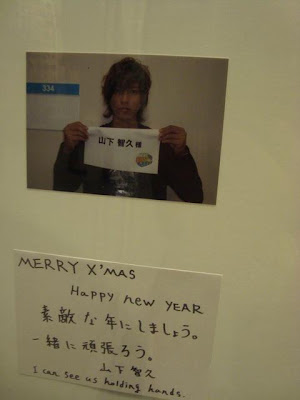 334
山下 智久 様
MERRY X'MAS
Happy new YEAR
素敵な年にしましょう。
一緒に頑張ろう。
山下 智久
I can see us holding hands.